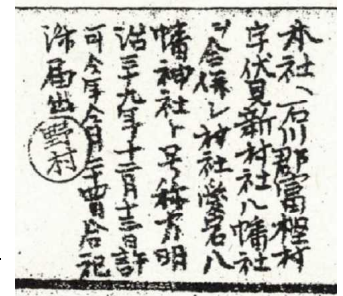 本社ハ石川郡富樫村
字伏見新村社八幡社
ヲ合併シ村社 八
幡神社ト号称方明
治三十九年十二月十三日許
可今年今月二十 日合祀
済届出
野村